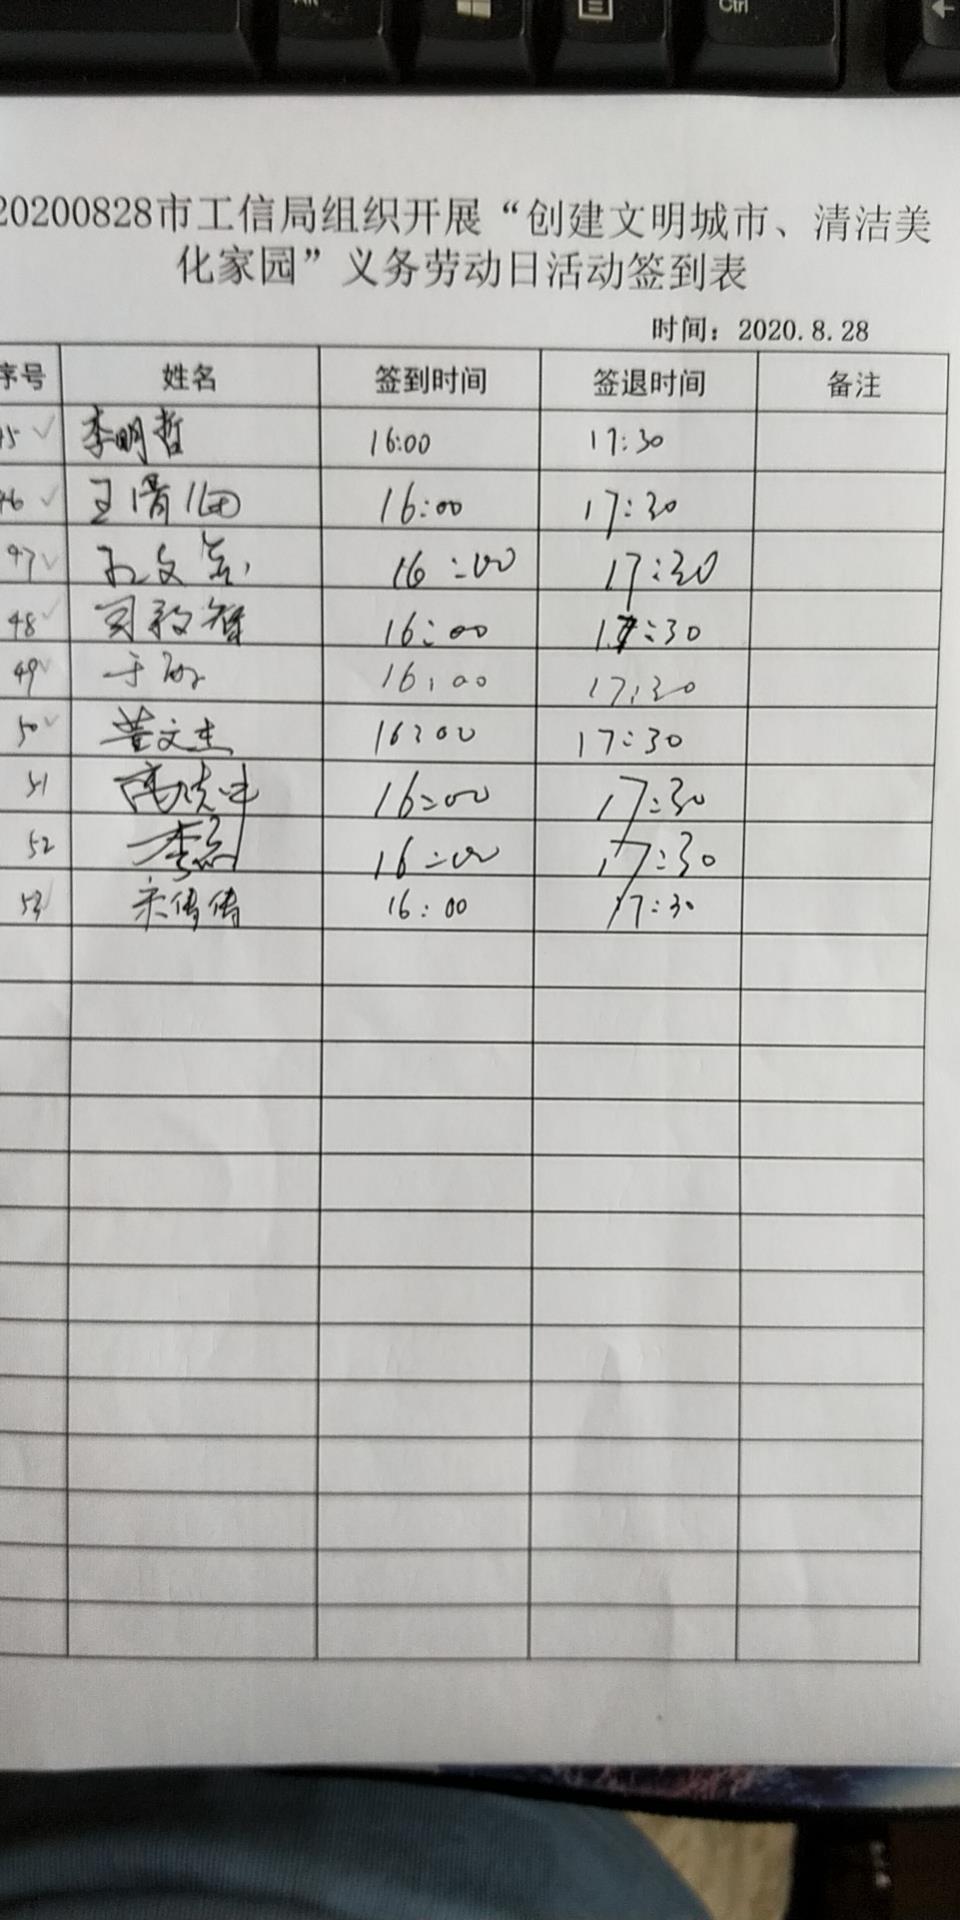 Alt
Ctrl
20200828市工信局组织开展“创建文明城市、清洁美
化家园”义务劳动日活动签到表
时间：2020.8.28
序号 姓名 签到时间 签退时间 备注
45 李明哲 16:00 17:30
46 王 16:00 17:30
47 孙文 16:00 17:30
48 司毅智 16:00 17:30
49 于 16:00 17:30
50 董文杰 16:00 17:30
51 高 16:00 17:30
52 李 16:00 17:30
53 宋倩倩 16:00 17:30